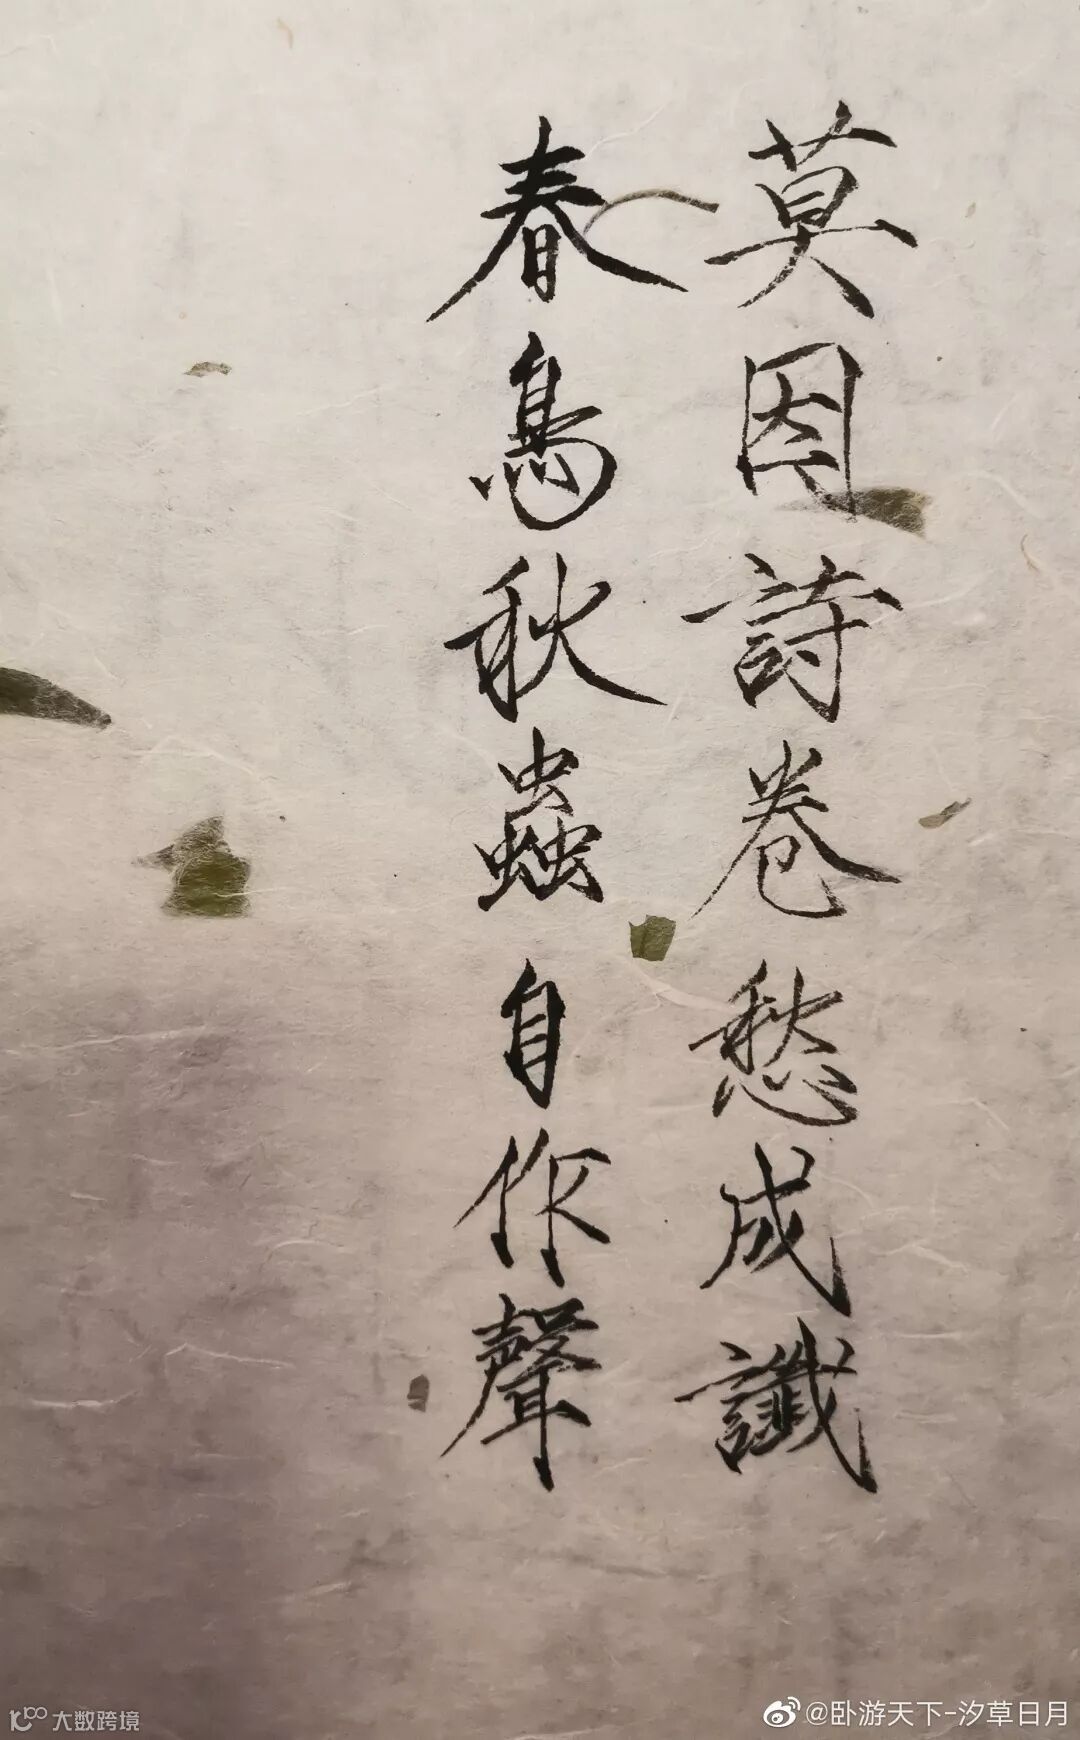 莫因詩卷愁成讖
春鳥秋蟲自作聲
大数跨境
@卧游天下-汐草日月